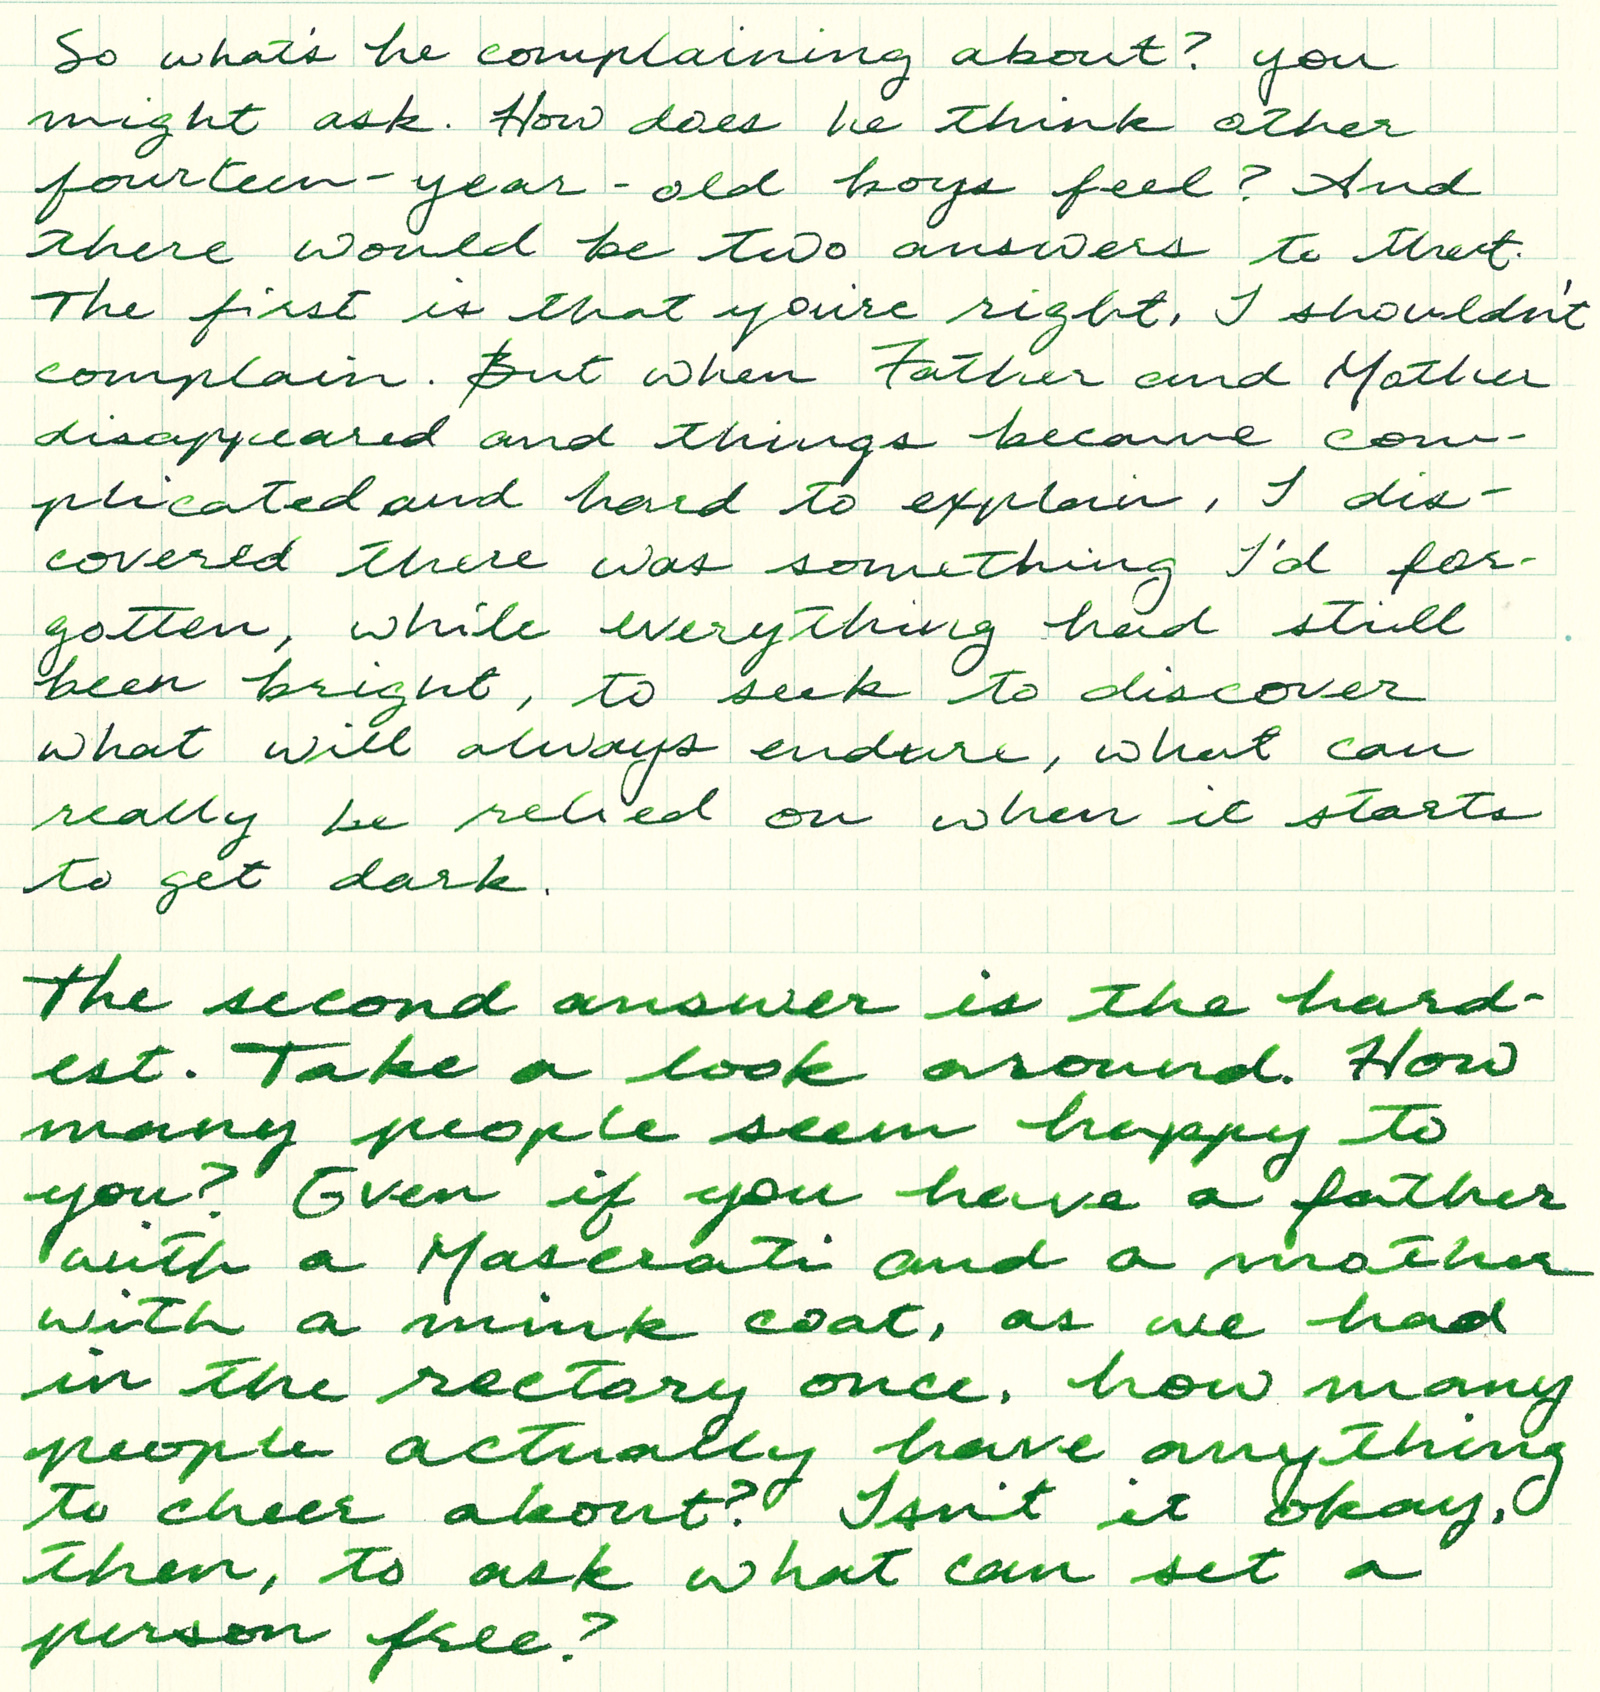 So what's he complaining about? you
might ask. How does he think other
fourteen-year-old boys feel? And
there would be two answers to that.
The first is that you're right, I shouldn't
complain. But when Father and Mother
disappeared and things became com-
plicated and hard to explain, I dis-
covered there was something I'd for-
gotten, while everything had still
been bright, to seek to discover
what will always endure, what can
really be relied on when it starts
to get dark.
The second answer is the hard-
est. Take a look around. How
many people seem happy to
you? Even if you have a father
with a Maserati and a mother
with a mink coat, as we had
in the rectory once, how many
people actually have anything
to cheer about? Isn't it okay,
then, to ask what can set a
person free?